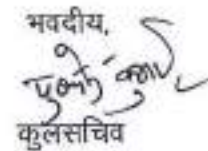 भवदीय,
कुलसचिव